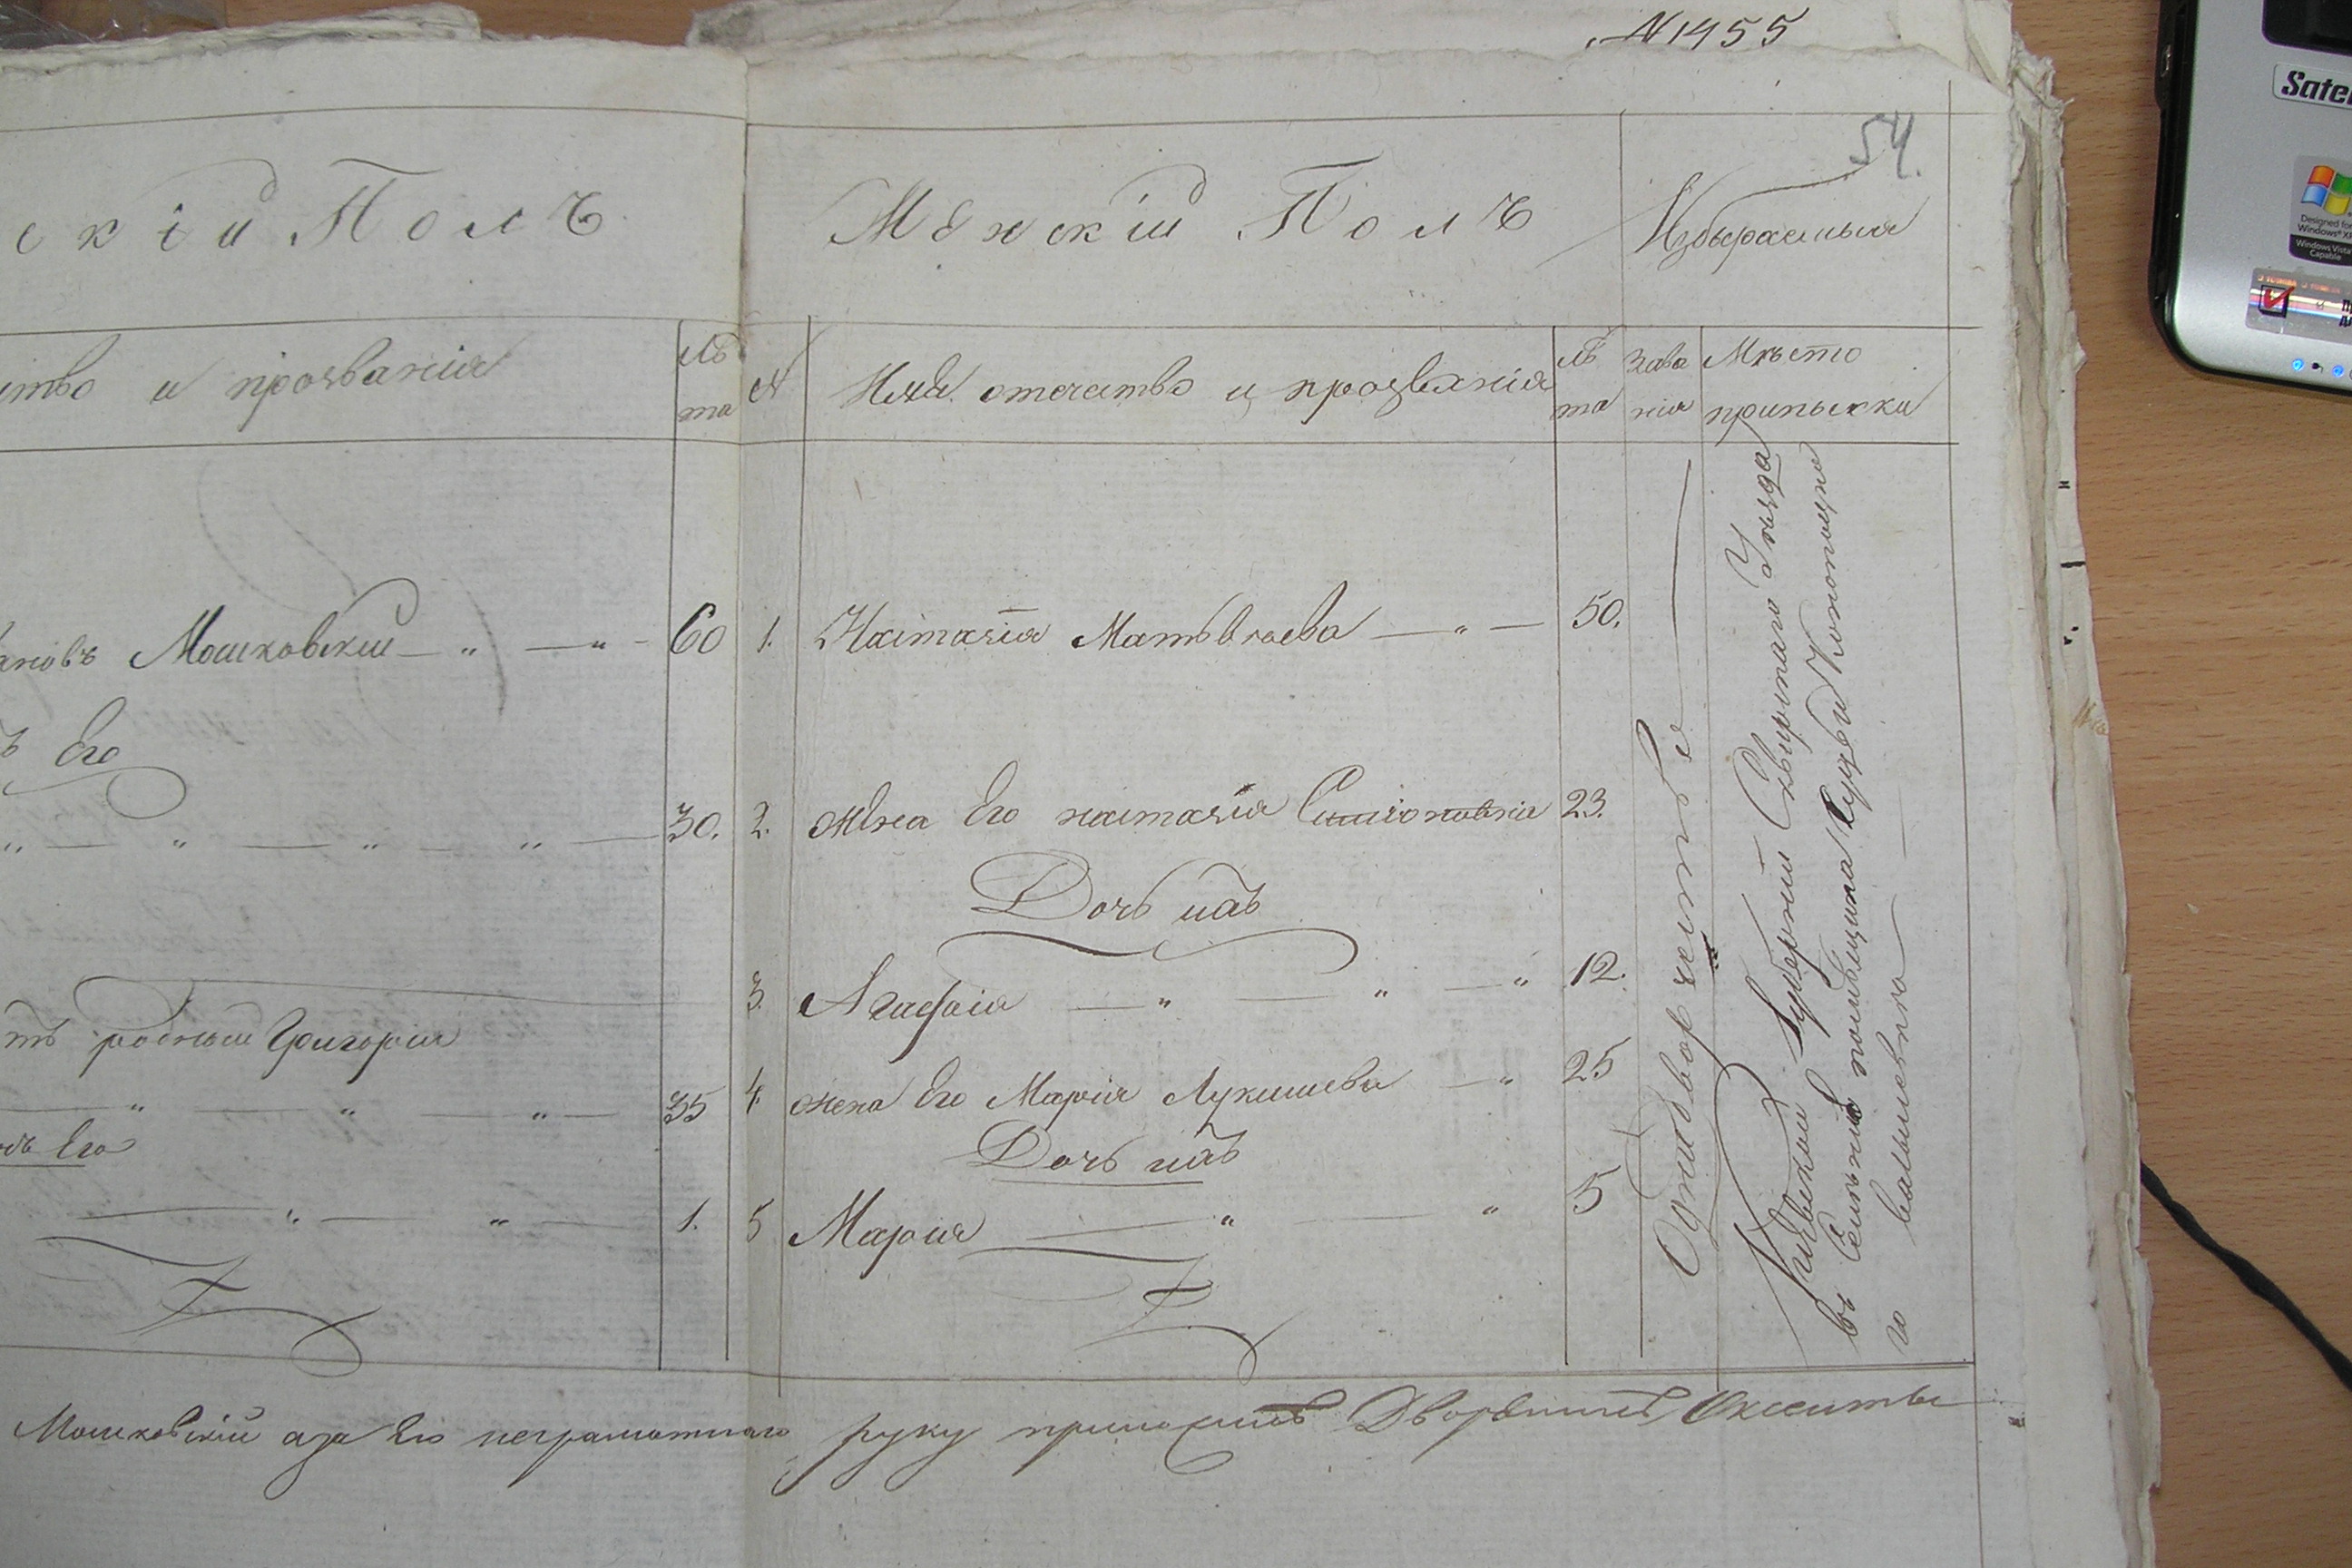 N 1455
54.
скій Полъ
Женскій Полъ
Избыраемыя
ство и прозванія
Лѣ
та
N
Имя отечество и прозванія
лѣ
та
Зава
нія
Мѣсто
приписки
ановъ Мошковскій — „ — „ -
60
1.
Настасія Матвѣаева — „ —
50.
ъ Его
30.
2.
жена Его настасія
23.
Дочь ихъ
3.
Агафія — „ — „ — „
12.
тъ родный Григорія
35
4.
жена Его Марія Лукишева — „
25
нъ Его
Дочь ихъ
1.
5
Марія — „ — „
5
Однодворчество
Кіевской Губерніи Сквирскаго Уезда
въ помѣщика Конопацка
го
Мошковскій а за Его неграмотнаго руку приложилъ Дворянинъ
Sate
Designed for
Windows® XP
Windows Vista
Capable